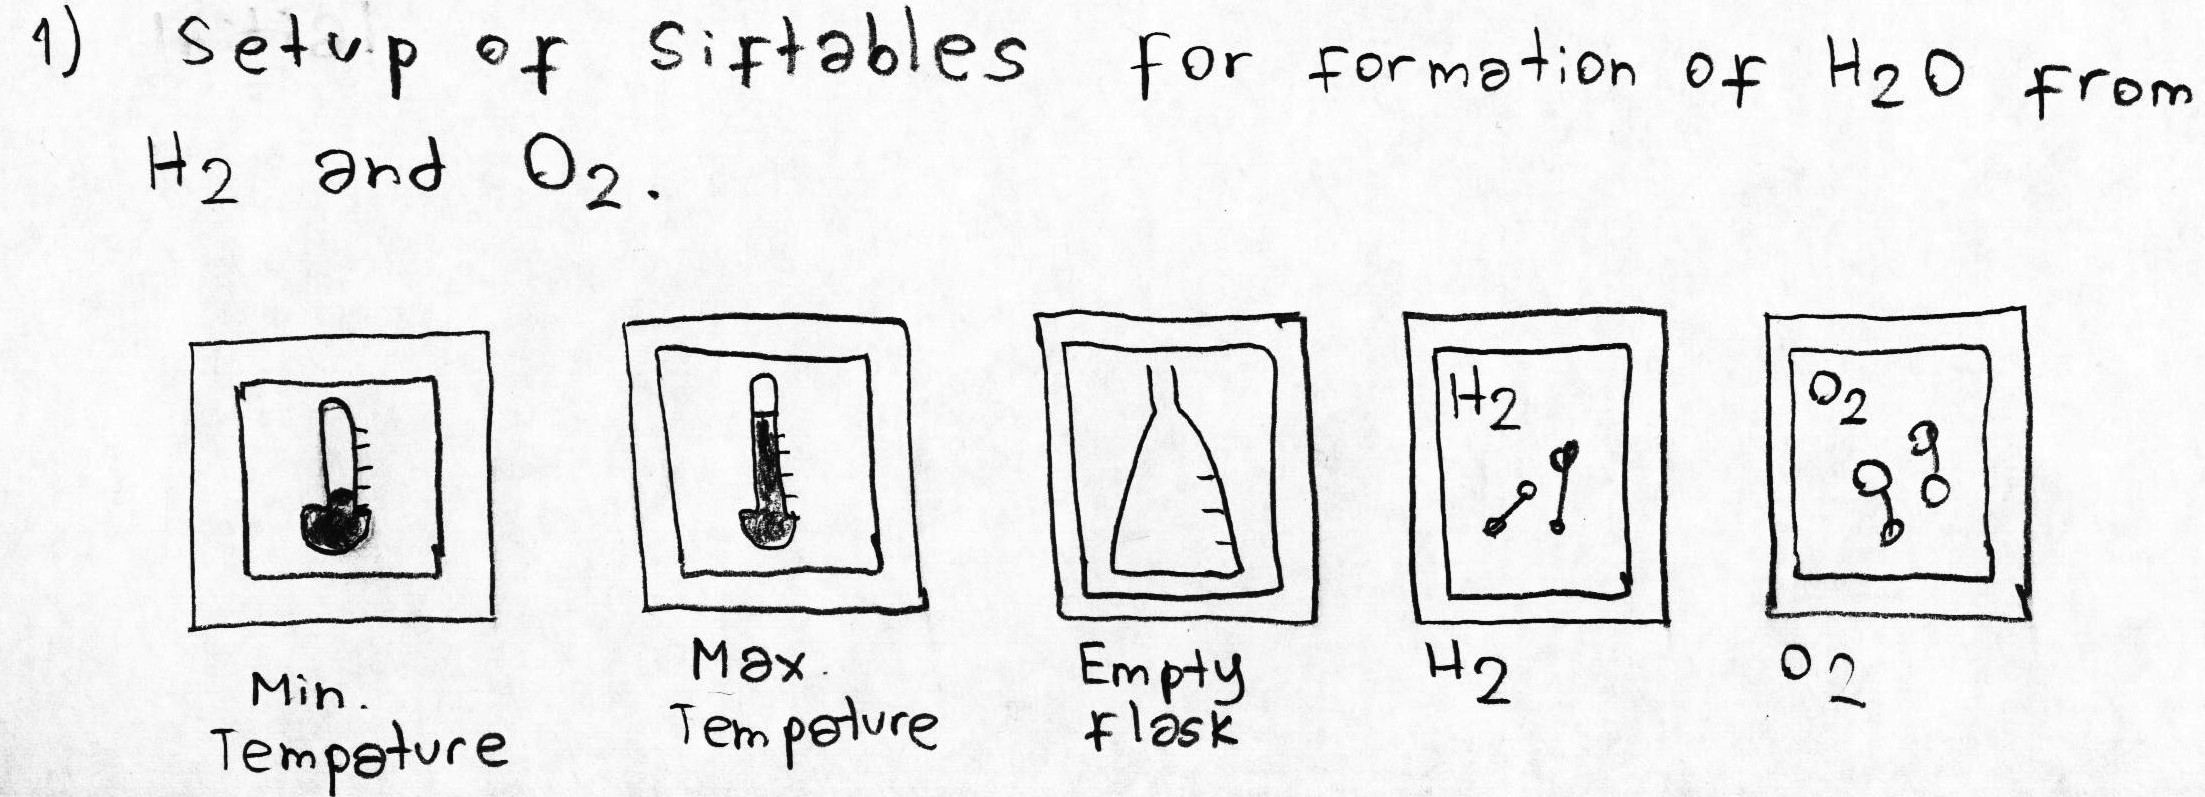 1) Setup of Siftables for formation of H2O from
H2 and O2.
H2
O2
Min.
Tempature
Max.
Tempature
Empty
flask
H2
O2